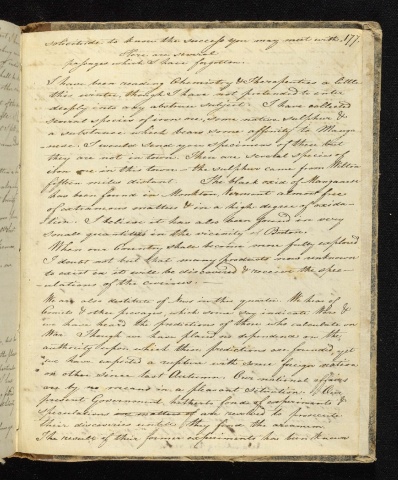 solicitude to know the success you may meet with. 177
Here are several
passages which I have forgotten.
I have been reading Chemistry & Therapeutics a little
this winter, though I have not pretended to enter
deeply into any abstruse subject. I have collected
several species of iron ore, some native sulphur &
a substance which bears some affinity to Manga
nese. I would send you specimens of these but
they are not in town. There are several species of
iron ore in this town - the sulphur came from Wilton
fifteen miles distant. The black oxide of Manganese
has been found in Monkton Vermont almost free
of extraneous matters & in a high degree of oxida-
tion. I believe it has also been found in very
small quantities in the vicinity of Boston.
When our Country shall become more fully explored
I doubt not but that many products now unknown
to exist in it will be discovered & receive the spec-
ulations of the curious.
We are also destitute of News in this quarter. We hear of
Comets & other presages, which some say indicate War &
we have heard the predictions of those who calculate on
War. Tho' I no have placed no dependence on the
authority upon which the predictions are founded, yet
we have expected a rupture with some foreign nation
or other since last Autumn. Our national affairs
are by no means in a pleasant situation. Our
present Government, hitherto fond of experiments &
speculations are resolved to prosecute
their discoveries until they find the
The result of their former experiments has been